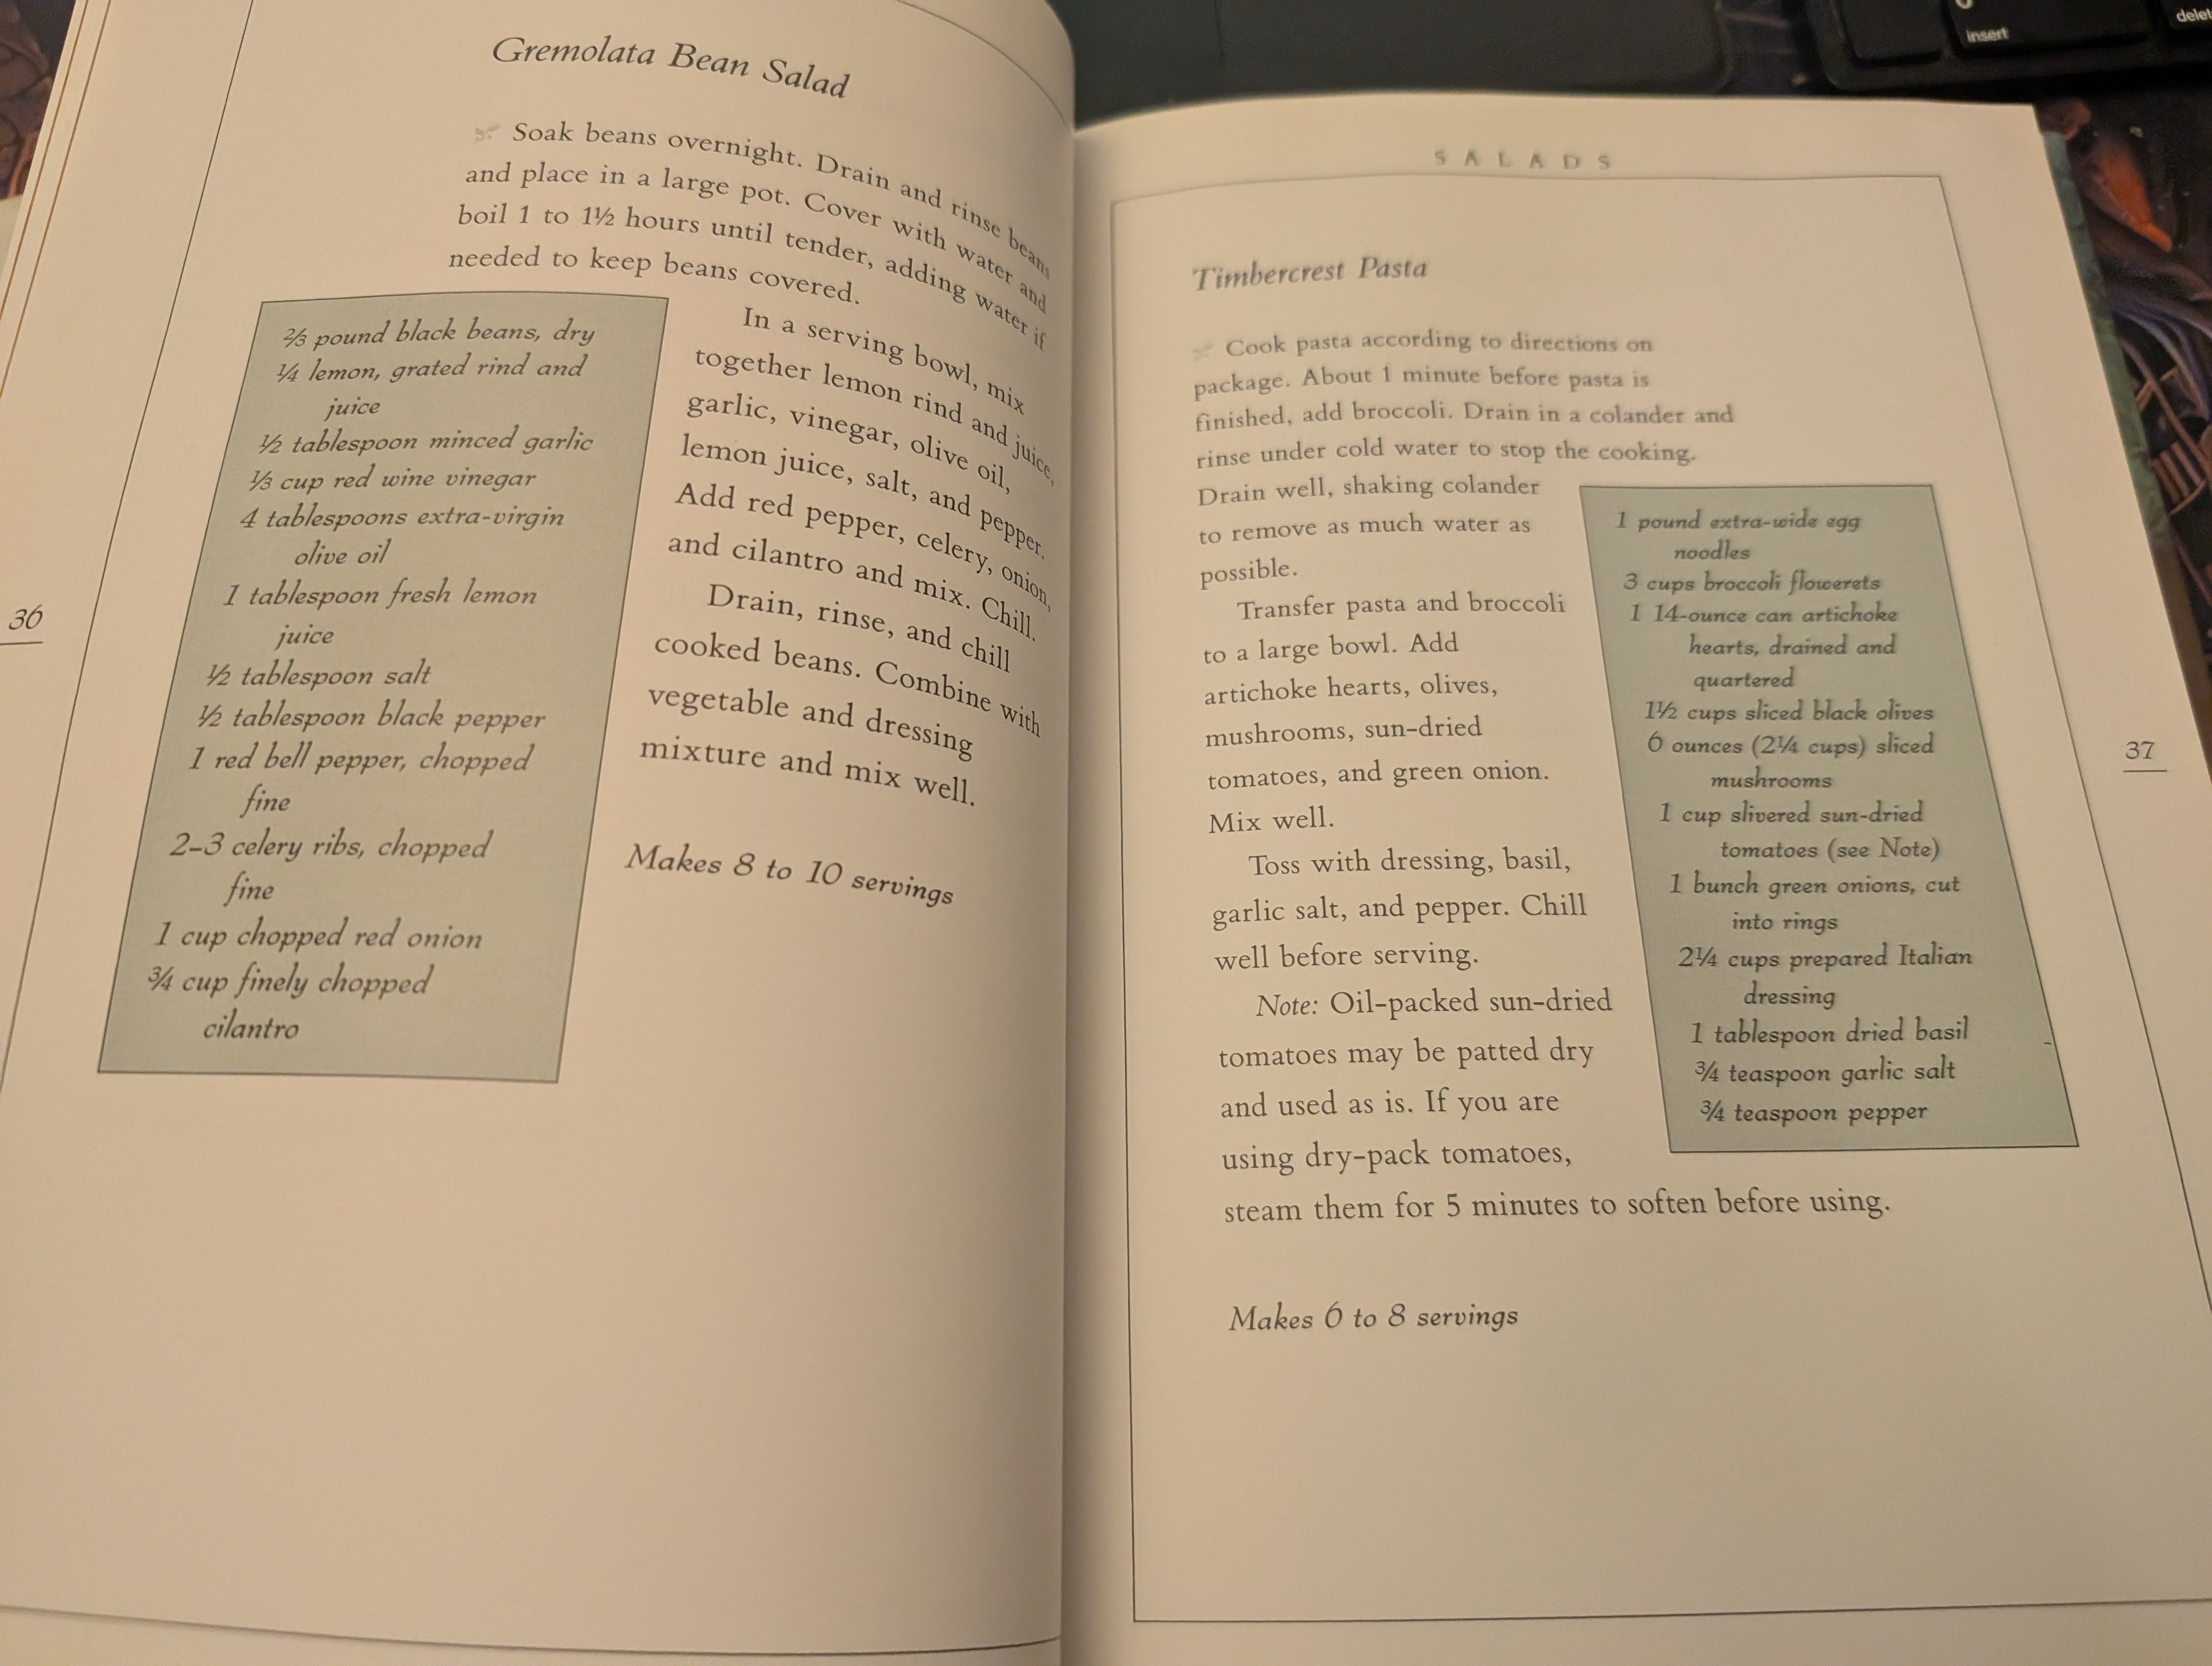 Gremolata Bean Salad
Soak beans overnight. Drain and rinse beans
and place in a large pot. Cover with water and
boil 1 to 1½ hours until tender, adding water if
needed to keep beans covered.
⅔ pound black beans, dry
¼ lemon, grated rind and
juice
½ tablespoon minced garlic
⅓ cup red wine vinegar
4 tablespoons extra-virgin
olive oil
1 tablespoon fresh lemon
juice
½ tablespoon salt
½ tablespoon black pepper
1 red bell pepper, chopped
fine
2–3 celery ribs, chopped
fine
1 cup chopped red onion
¾ cup finely chopped
cilantro
In a serving bowl, mix
together lemon rind and juice,
garlic, vinegar, olive oil,
lemon juice, salt, and pepper.
Add red pepper, celery, onion,
and cilantro and mix. Chill.
Drain, rinse, and chill
cooked beans. Combine with
vegetable and dressing
mixture and mix well.
Makes 8 to 10 servings
36
SALADS
Timbercrest Pasta
Cook pasta according to directions on
package. About 1 minute before pasta is
finished, add broccoli. Drain in a colander and
rinse under cold water to stop the cooking.
Drain well, shaking colander
to remove as much water as
possible.
Transfer pasta and broccoli
to a large bowl. Add
artichoke hearts, olives,
mushrooms, sun-dried
tomatoes, and green onion.
Mix well.
Toss with dressing, basil,
garlic salt, and pepper. Chill
well before serving.
Note: Oil-packed sun-dried
tomatoes may be patted dry
and used as is. If you are
using dry-pack tomatoes,
steam them for 5 minutes to soften before using.
1 pound extra-wide egg
noodles
3 cups broccoli flowerets
1 14-ounce can artichoke
hearts, drained and
quartered
1½ cups sliced black olives
6 ounces (2¼ cups) sliced
mushrooms
1 cup slivered sun-dried
tomatoes (see Note)
1 bunch green onions, cut
into rings
2¼ cups prepared Italian
dressing
1 tablespoon dried basil
¾ teaspoon garlic salt
¾ teaspoon pepper
Makes 6 to 8 servings
37
insert